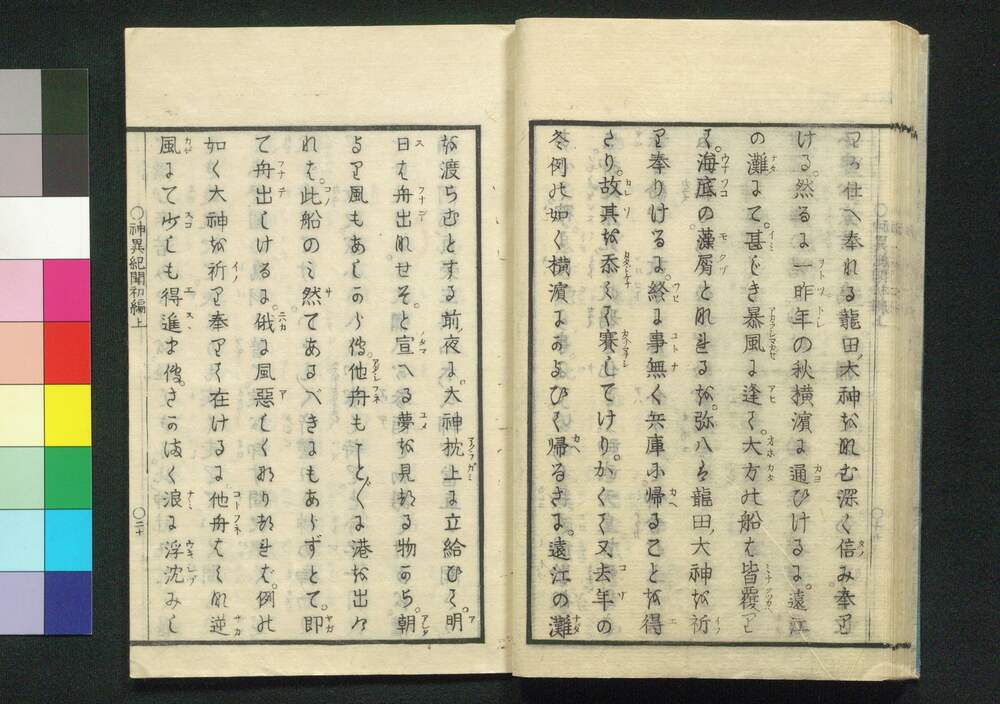 てつ仕へ奉れる龍田ノ大神をなむ深く信み奉りて
ける。然るに一昨年の秋横濱に通ひけるに。遠江
の灘にて。甚じき暴風に逢て。大方の船は皆覆りて
て。海底の藻屑となれるを。弥八は龍田ノ大神を祈
り奉りけるに。終に事無く兵庫に帰ることを得
たり。故其を忝くて賽してけり。かくて又去年の
冬例の如く横濱におよひて帰るさに。遠江の灘
を渡らむとする前ノ夜に。大神枕上に立給ひて。明
日は舟出なせそ。と宣へる夢を見たる物から。朝
より風もあしからず。他舟もこと〴〵に港を出た
れは。此船のみ然てあるべきにもあらずとて。即
て舟出しけるに。俄に風惡しくなりたれば。例の
如く大神を祈り奉りて在けるに。他舟はしな逆
風にて少しも得進ます。さのみく浪に浮沈みし
○神異紀聞初編上
○二十